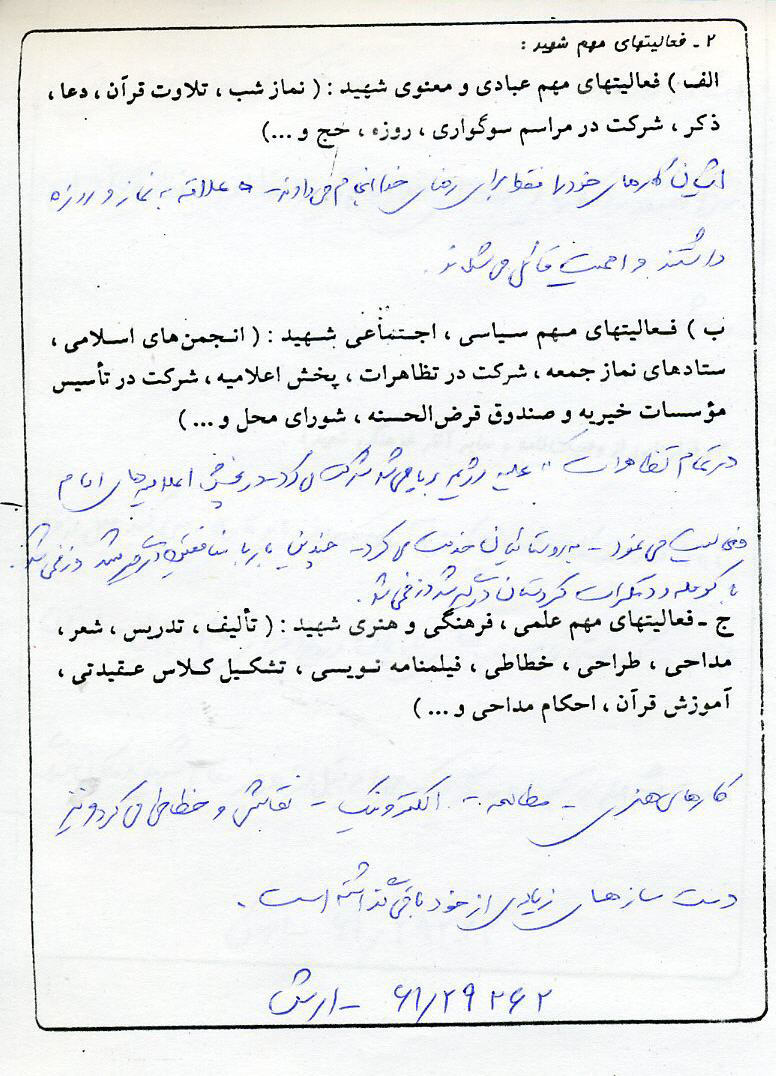 ۲ ـ فعالیتهای مهم شهید :
الف ) فعالیتهای مهم عبادی و معنوی شهید : ( نماز شب ، تلاوت قرآن ، دعا ،
ذکر ، شرکت در مراسم سوگواری ، روزه ، حج و ...)
ایشان کارهای خود را فقط برای رضای خدا انجام می‌دادند - علاقه به نماز و روزه
داشتند و اهمیت قائل می‌شدند .
ب ) فعالیتهای مهم سیاسی ، اجتماعی شهید : ( انجمن‌های اسلامی ،
ستادهای نماز جمعه ، شرکت در تظاهرات ، پخش اعلامیه ، شرکت در تأسیس
مؤسسات خیریه و صندوق قرض‌الحسنه ، شورای محل و ... )
در تمام تظاهرات علیه رژیم برپا می‌شد شرکت می‌کرد - در پخش اعلامیه‌های امام
فعالیت می‌نمود - به روستائیان خدمت می‌کرد - چندین بار با منافقین درگیر شد و زخمی شد
با کومله و دمکرات کردستان درگیر شد و زخمی شد .
ج ـ فعالیتهای مهم علمی ، فرهنگی و هنری شهید : ( تألیف ، تدریس ، شعر ،
مداحی ، طراحی ، خطاطی ، فیلمنامه نویسی ، تشکیل کلاس عقیدتی ،
آموزش قرآن ، احکام مداحی و ... )
کارهای هنری - مطالعه - الکترونیک - نقاشی و خطاطی می‌کرد و نیز
دست سازهای زیادی از خود باقی گذاشته است .
۶۱/۲۹۲۶۲ - ارتش